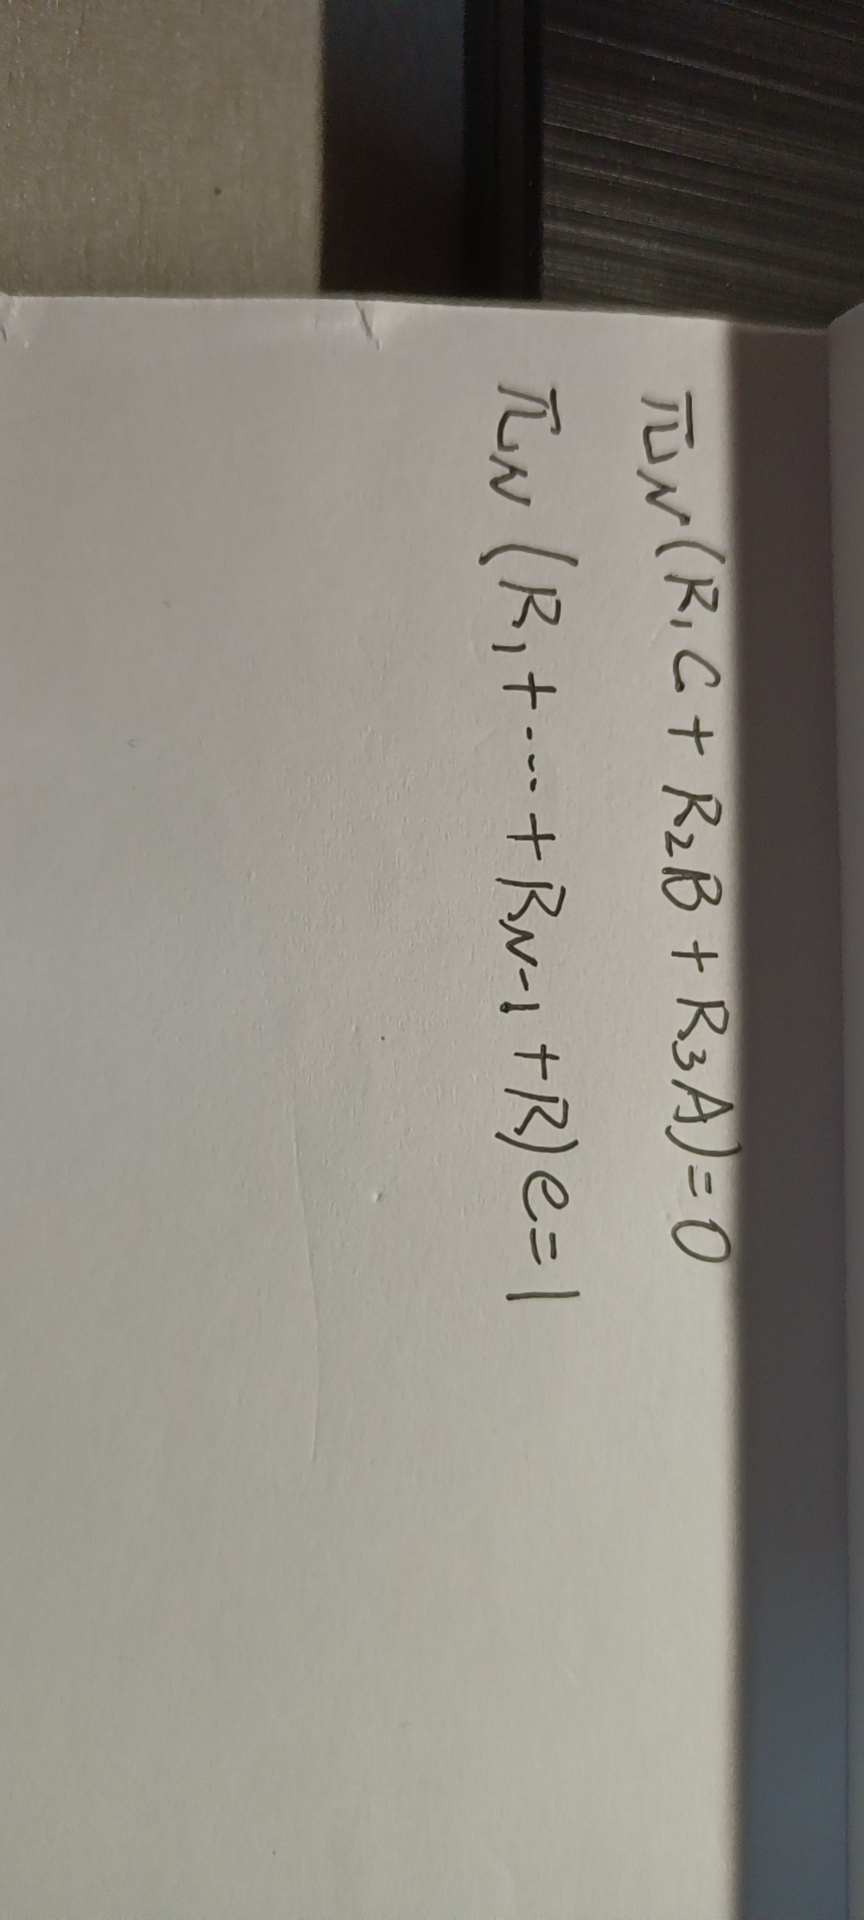 π_N(R_1C+R_2B+R_3A)=0
π_N(R_1+⋯+R_{N-1}+R)e=1